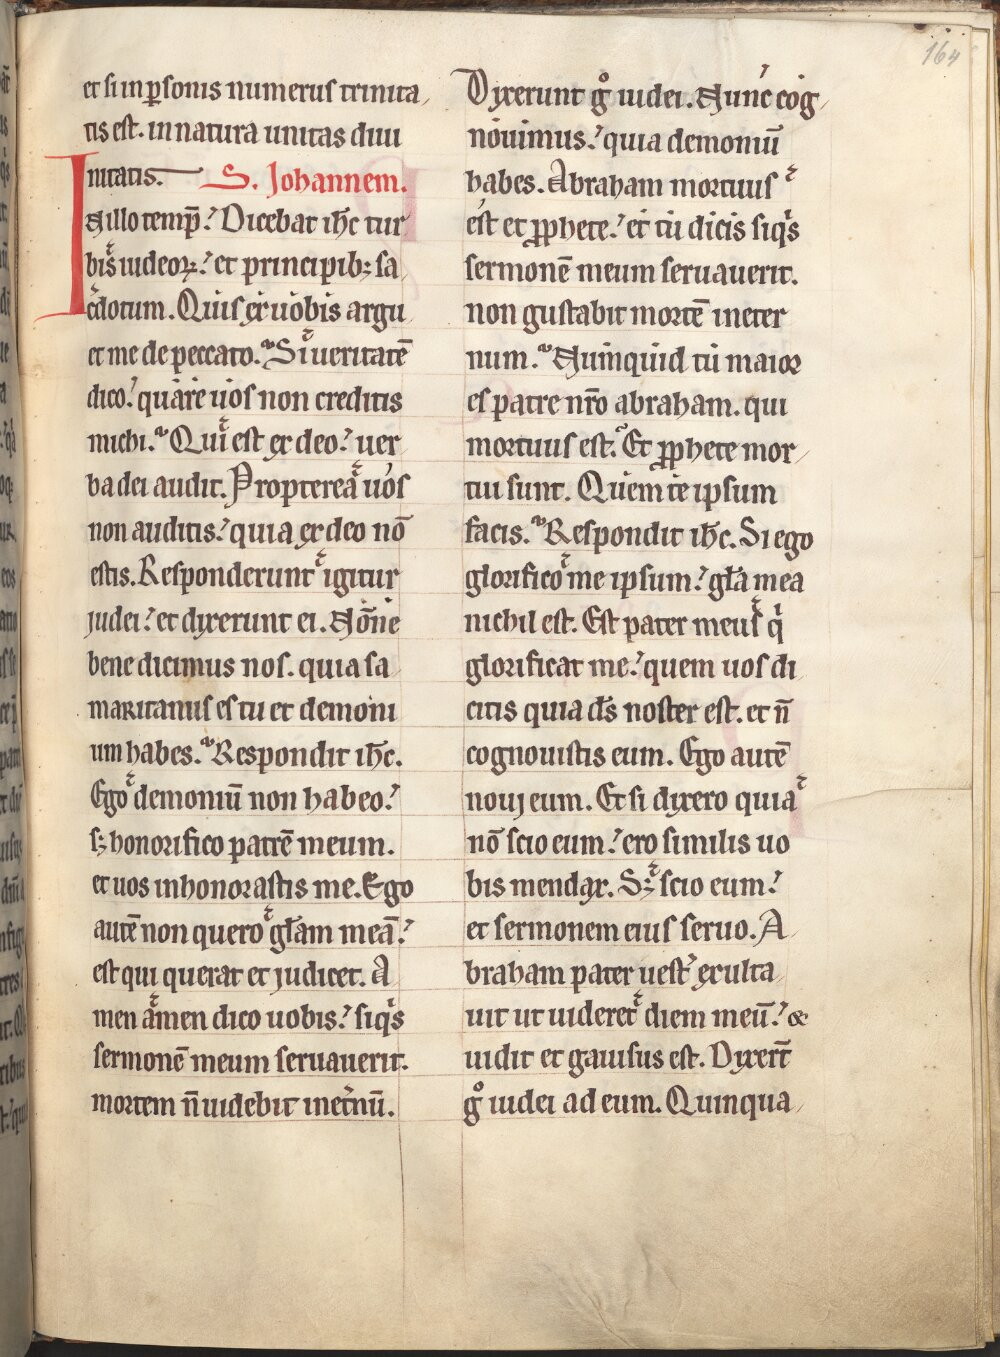 164
et si in p̱sonis numerus trinita
tis est. in natura unitas diui
nitatis. S. Johannem.
In illo temp̄. Dicebat ih̄c tur
bis iudeoꝝ. et principibꝫ sa
c̄dotum. Quis ex uobis argu
et me de peccato. Si ueritatē
dico. quare uos non creditis
michi. Qui est ex deo. uer
ba dei audit. Propterea uos
non auditis. quia ex deo nō
estis. Responderunt igitur
judei. et dixerunt ei. Nōne
bene dicimus nos. quia sa
maritanus es tu et demoni
um habes. Respondit ih̄c.
Ego demoniū non habeo.
sꝫ honorifico patrē meum.
et uos inhonorastis me. Ego
autē non quero gl̄am meā.
est qui querat et judicet. A
men amen dico uobis. siqͥs
sermonē meum seruauerit.
mortem n̄ uidebit inet̄nū.
Dixerunt gͦ iudei. Nunc cog
nouimus. quia demoniū
habes. Abraham mortuus
est et ꝓphete. et tu dicis siqͥs
sermonē meum seruauerit.
non gustabit mortē ineter
num. Nunquid tu maior
es patre nr̄o abraham. qui
mortuus est. Et ꝓphete mor
tui sunt. Quem te ipsum
facis. Respondit ih̄c. Si ego
glorifico me ipsum. gl̄a mea
nichil est. Est pater meus qͥ
glorificat me. quem uos di
citis quia d̄s noster est. et n̄
cognouistis eum. Ego autē
nouj eum. Et si dixero quia
nō scio eum. ero similis uo
bis mendax. Sꝫ scio eum.
et sermonem eius seruo. A
braham pater uest᷑ exulta
uit ut uideret diem meū. &
uidit et gauisus est. Dixert̄
gͦ iudei ad eum. Quinqua